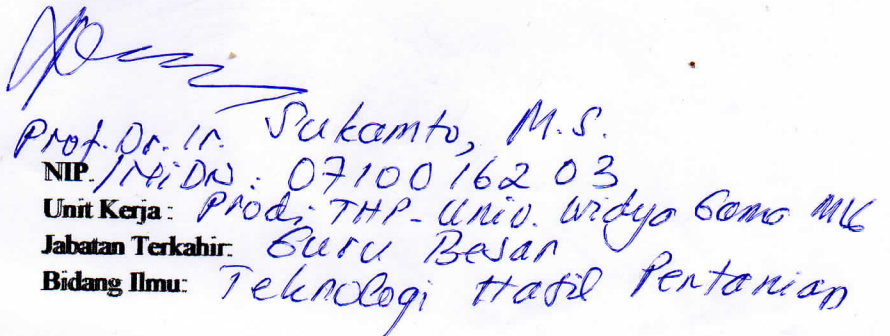 Prof. Dr. Ir. Sukamto, M.S.
NIP. / NiDN : 07100 162 03
Unit Kerja : Prodi THP - Univ. Widya Gama MLG
Jabatan Terkahir: Guru Besar
Bidang Ilmu: Teknologi Hasil Pertanian